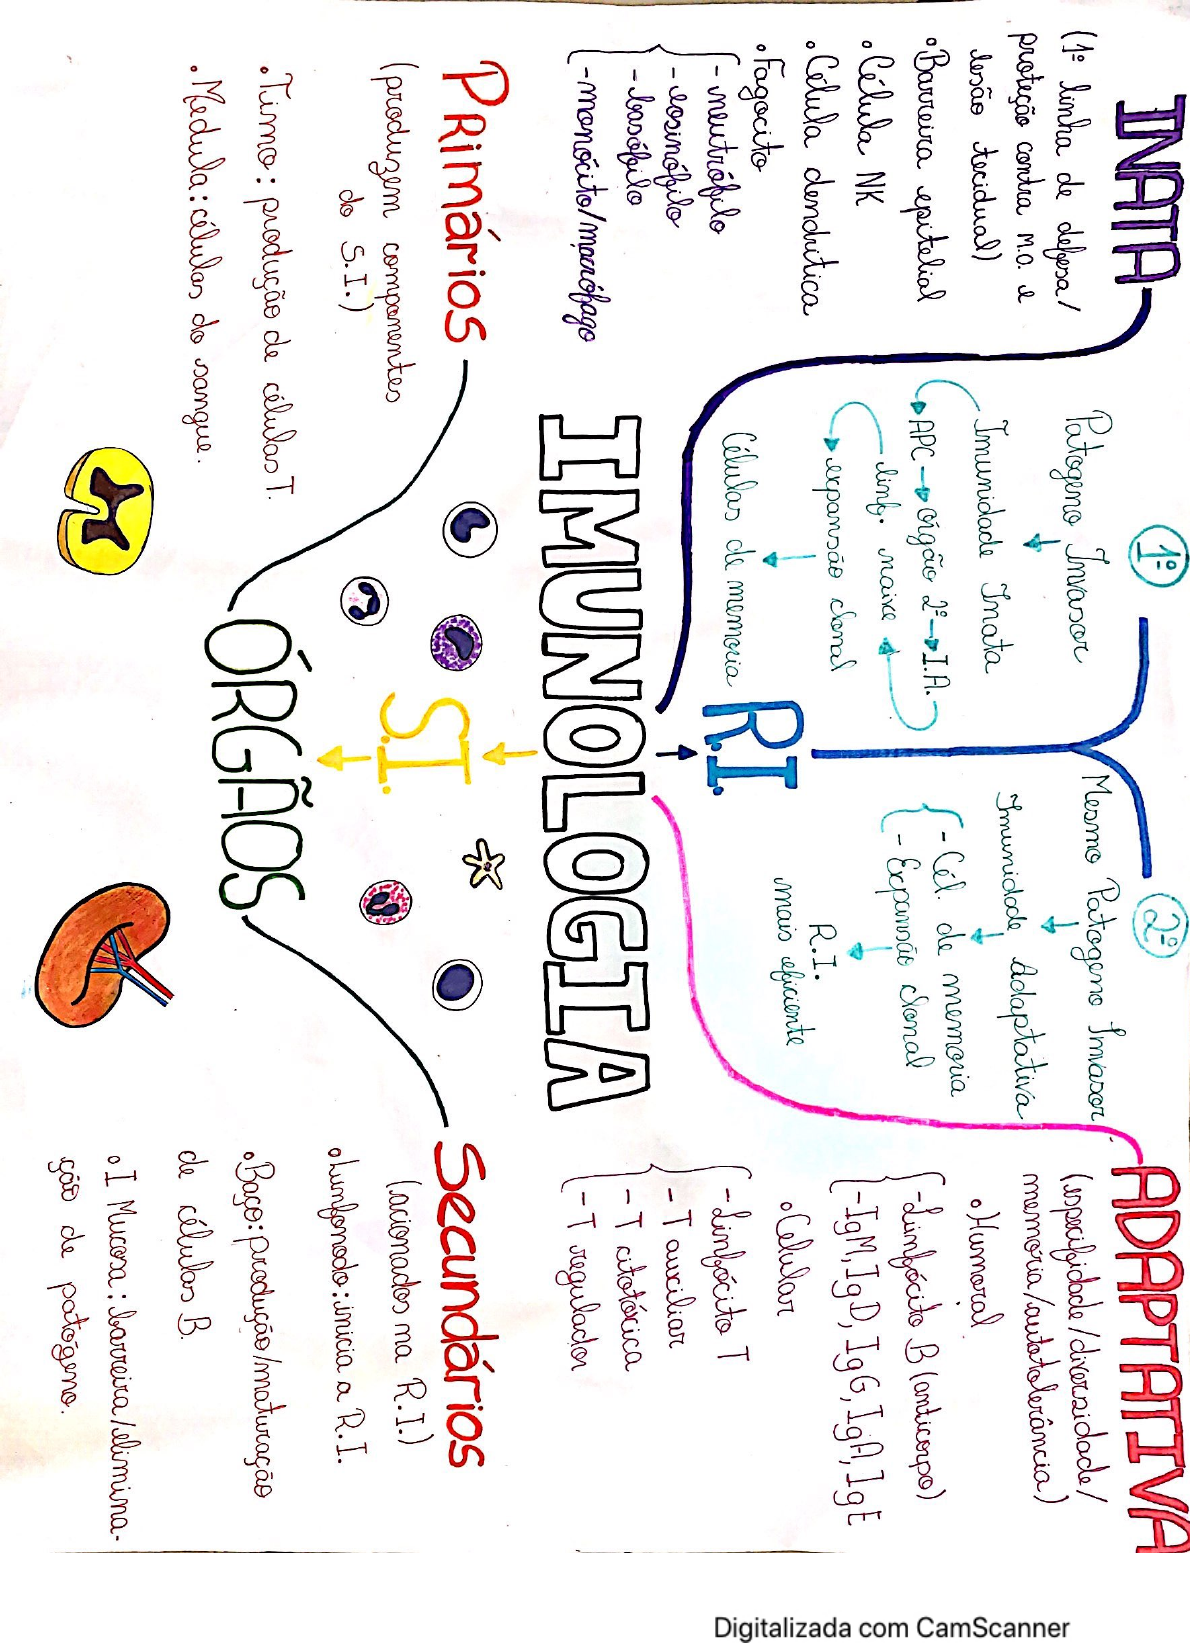 INATA
(1º linha de defesa/
proteção contra m.o. e
lesão tecidual)
•Barreira epitelial
•Célula NK
•Célula dendrítica
•Fagocito
- neutrófilo
- eosinófilo
- basófilo
-monócito/macrófago
1º
Patogeno Invasor
Imunidade Inata
APC → órgão 2º → I.A.
linf. naive
expansão clonal
Células de memoria
R.I.
2º
Mesmo Patogeno Invasor
Imunidade Adaptativa
- Cél. de memoria
- Expansão clonal
R.I.
mais eficiente
ADAPTATIVA
(especifidade/diversidade/
memória/autotolerância)
•Humoral
-Linfócito B (anticorpo)
-IgM, IgD, IgG, IgA, IgE
•Celular
-Linfócito T
- T auxiliar
- T citotóxica
- T regulador
IMUNOLOGIA
S.I.
ÓRGÃOS
PRimáRios
(produzem componentes
do S.I.)
•Timo: produção de células T.
•Medula: células do sangue.
Secundários
(acionados na R.I.)
•Linfonodo: inicia a R.I.
•Baço: produção/maturação
de células B.
•I Mucosa: barreira/elimina-
ção de patógeno.
Digitalizada com CamScanner